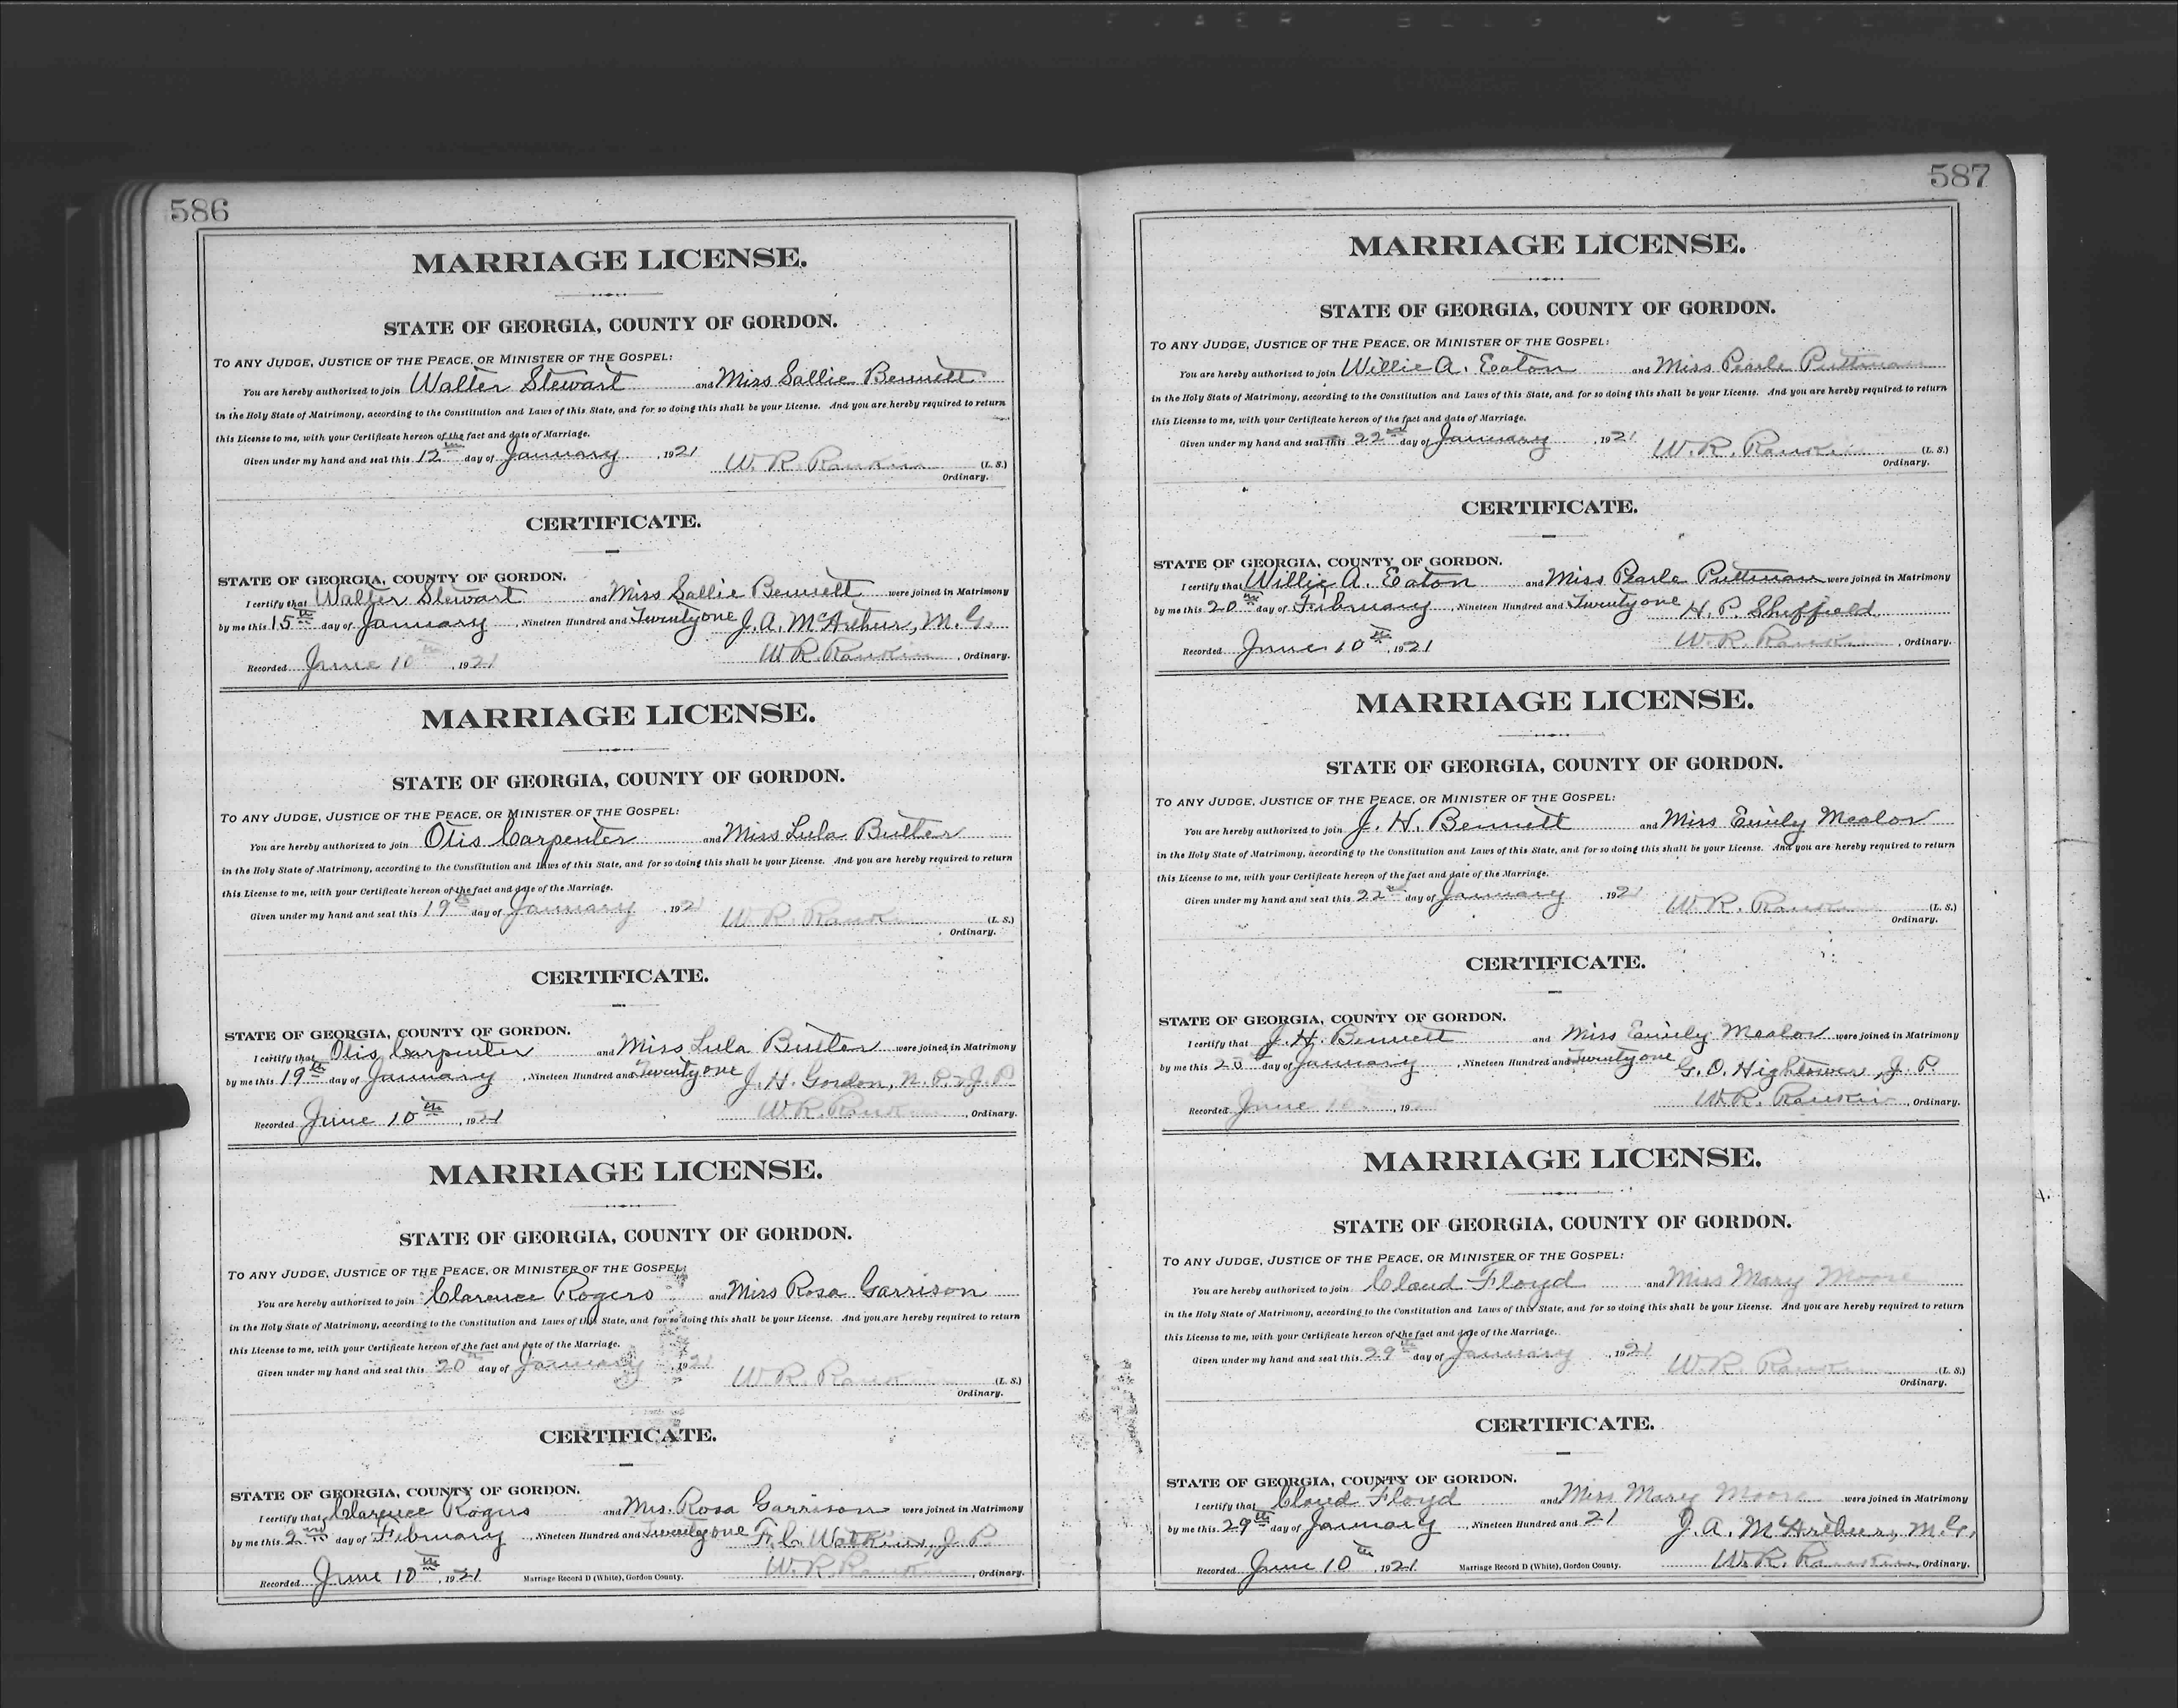 586
MARRIAGE LICENSE.
STATE OF GEORGIA, COUNTY OF GORDON.
TO ANY JUDGE, JUSTICE OF THE PEACE, OR MINISTER OF THE GOSPEL:
You are hereby authorized to join Walter Stewart and Miss Sallie Bennett
in the Holy State of Matrimony, according to the Constitution and Laws of this State, and for so doing this shall be your License. And you are hereby required to return
this License to me, with your Certificate hereon of the fact and date of Marriage.
Given under my hand and seal this 12th day of January, 1921 W. R. Rankin (L. S.)
Ordinary.
CERTIFICATE.
STATE OF GEORGIA, COUNTY OF GORDON.
I certify that Walter Stewart and Miss Sallie Bennett were joined in Matrimony
by me this 15th day of January, Nineteen Hundred and Twenty one J. A. McArthur, M. G.
Recorded June 10th, 1921 W. R. Rankin, Ordinary.
MARRIAGE LICENSE.
STATE OF GEORGIA, COUNTY OF GORDON.
TO ANY JUDGE, JUSTICE OF THE PEACE, OR MINISTER OF THE GOSPEL:
You are hereby authorized to join Otis Carpenter and Miss Lula Butler
in the Holy State of Matrimony, according to the Constitution and Laws of this State, and for so doing this shall be your License. And you are hereby required to return
this License to me, with your Certificate hereon of the fact and date of the Marriage.
Given under my hand and seal this 19th day of January, 1921 W. R. Rankin (L. S.)
Ordinary.
CERTIFICATE.
STATE OF GEORGIA, COUNTY OF GORDON.
I certify that Otis Carpenter and Miss Lula Butler were joined in Matrimony
by me this 19th day of January, Nineteen Hundred and Twenty one J. H. Gordon, N. P. & J. P.
Recorded June 10th, 1921 W. R. Rankin, Ordinary.
MARRIAGE LICENSE.
STATE OF GEORGIA, COUNTY OF GORDON.
TO ANY JUDGE, JUSTICE OF THE PEACE, OR MINISTER OF THE GOSPEL:
You are hereby authorized to join Clarence Rogers and Miss Rosa Garrison
in the Holy State of Matrimony, according to the Constitution and Laws of this State, and for so doing this shall be your License. And you are hereby required to return
this License to me, with your Certificate hereon of the fact and date of the Marriage.
Given under my hand and seal this 20th day of January, 1921 W. R. Rankin (L. S.)
Ordinary.
CERTIFICATE.
STATE OF GEORGIA, COUNTY OF GORDON.
I certify that Clarence Rogers and Mrs. Rosa Garrison were joined in Matrimony
by me this 2nd day of February, Nineteen Hundred and Twenty one F. C. Watkins, J. P.
Recorded June 10th, 1921 Marriage Record D (White), Gordon County. W. R. Rankin, Ordinary.
587
MARRIAGE LICENSE.
STATE OF GEORGIA, COUNTY OF GORDON.
TO ANY JUDGE, JUSTICE OF THE PEACE, OR MINISTER OF THE GOSPEL:
You are hereby authorized to join Willie A. Eaton and Miss Pearle Puttman
in the Holy State of Matrimony, according to the Constitution and Laws of this State, and for so doing this shall be your License. And you are hereby required to return
this License to me, with your Certificate hereon of the fact and date of Marriage.
Given under my hand and seal this 22nd day of January, 1921 W. R. Rankin (L. S.)
Ordinary.
CERTIFICATE.
STATE OF GEORGIA, COUNTY OF GORDON.
I certify that Willie A. Eaton and Miss Pearle Puttman were joined in Matrimony
by me this 20th day of February, Nineteen Hundred and Twenty one H. P. Sheffield
Recorded June 10th, 1921 W. R. Rankin, Ordinary.
MARRIAGE LICENSE.
STATE OF GEORGIA, COUNTY OF GORDON.
TO ANY JUDGE, JUSTICE OF THE PEACE, OR MINISTER OF THE GOSPEL:
You are hereby authorized to join J. H. Bennett and Miss Emily Mealor
in the Holy State of Matrimony, according to the Constitution and Laws of this State, and for so doing this shall be your License. And you are hereby required to return
this License to me, with your Certificate hereon of the fact and date of the Marriage.
Given under my hand and seal this 22nd day of January, 1921 W. R. Rankin (L. S.)
Ordinary.
CERTIFICATE.
STATE OF GEORGIA, COUNTY OF GORDON.
I certify that J. H. Bennett and Miss Emily Mealor were joined in Matrimony
by me this day of January, Nineteen Hundred and Twenty one G. O. Hightower, J. P.
Recorded June 10, 19 W. R. Rankin, Ordinary.
MARRIAGE LICENSE.
STATE OF GEORGIA, COUNTY OF GORDON.
TO ANY JUDGE, JUSTICE OF THE PEACE, OR MINISTER OF THE GOSPEL:
You are hereby authorized to join Cloud Floyd and Miss Mary Moore
in the Holy State of Matrimony, according to the Constitution and Laws of this State, and for so doing this shall be your License. And you are hereby required to return
this License to me, with your Certificate hereon of the fact and date of the Marriage.
Given under my hand and seal this 29th day of January, 1921 W. R. Rankin (L. S.)
Ordinary.
CERTIFICATE.
STATE OF GEORGIA, COUNTY OF GORDON.
I certify that Cloud Floyd and Miss Mary Moore were joined in Matrimony
by me this 29th day of January, Nineteen Hundred and 21 J. A. McArthur, M. G.
Recorded June 10th, 1921. Marriage Record D (White), Gordon County. W. R. Rankin, Ordinary.